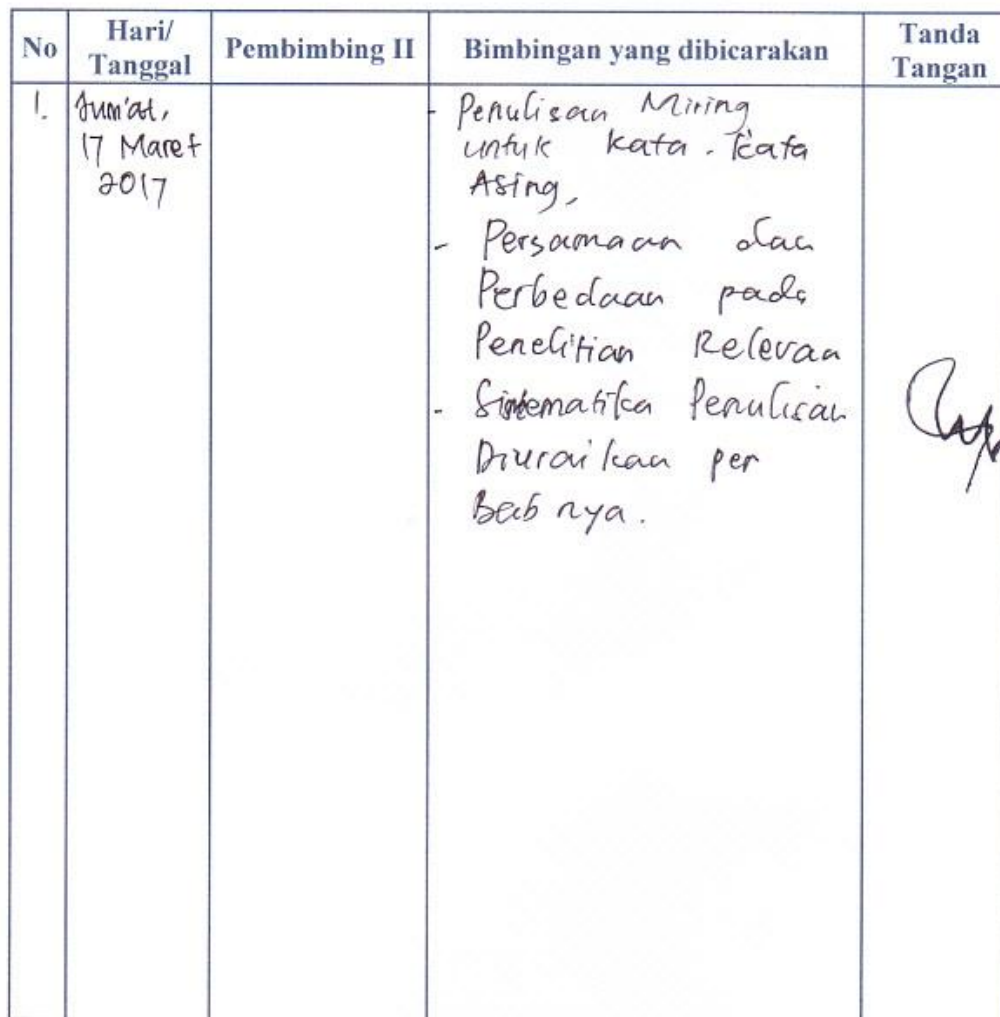 No Hari/ Tanggal Pembimbing II Bimbingan yang dibicarakan Tanda Tangan
1. Jum'at,
17 Maret
2017
- Penulisan Miring
untuk kata-kata
Asing,
- Persamaan dan
Perbedaan pada
Penelitian Relevan
- Sistematika Penulisan
Diuraikan per
Bab nya.